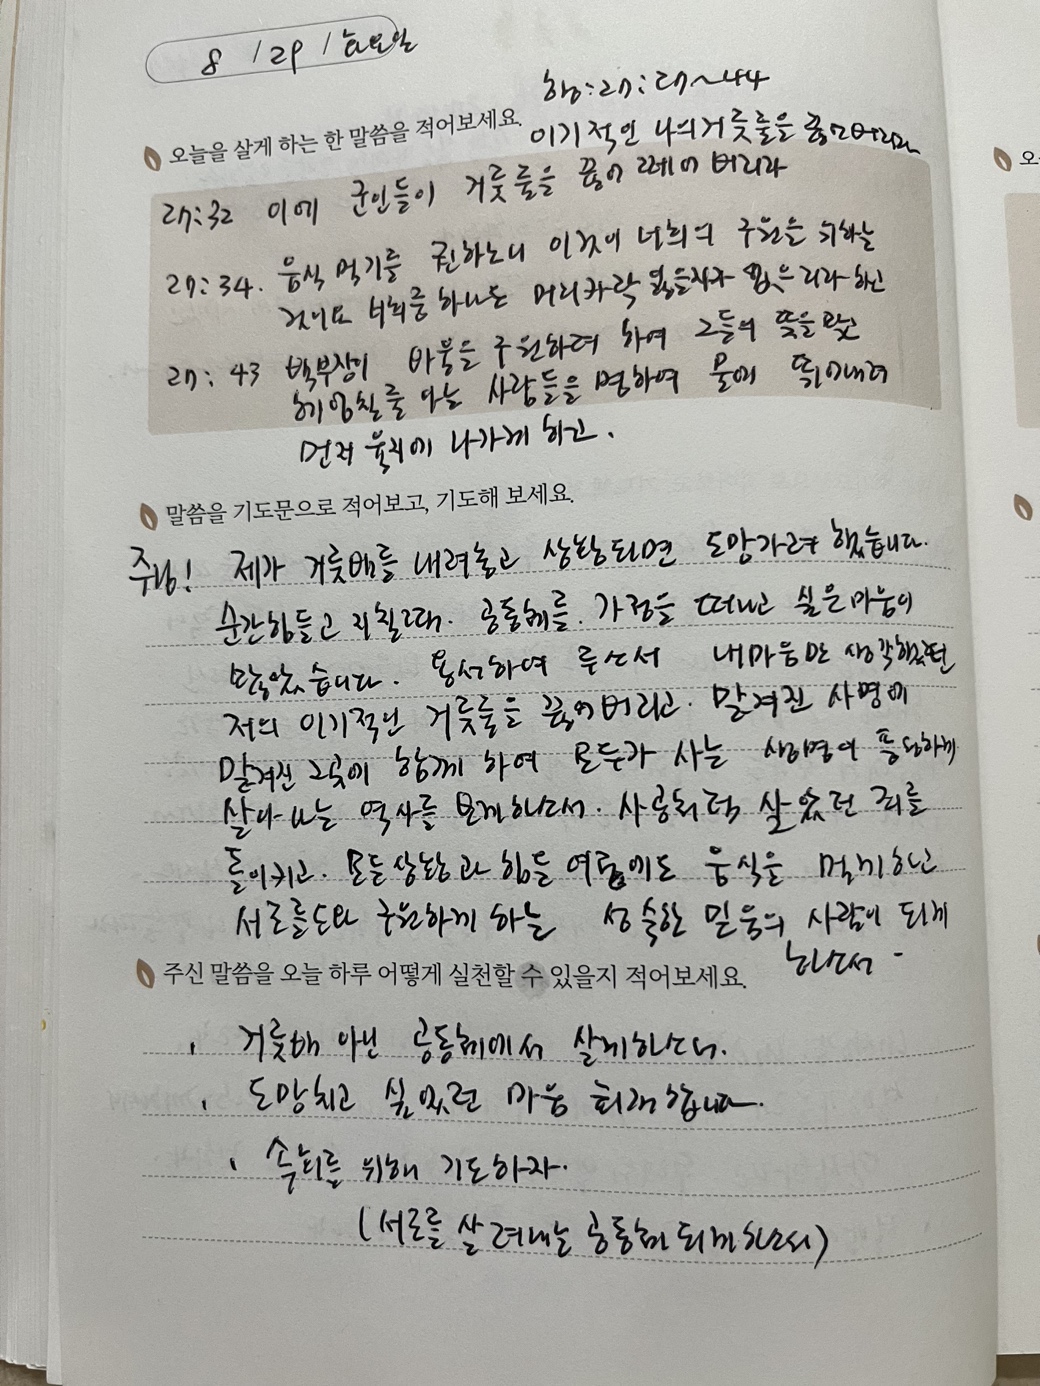 8 / 29 / 화요일
행:27:27~44
오늘을 살게 하는 한 말씀을 적어보세요.
이기적인 나의 거룻줄을 끊으어버리라
27:32 이에 군인들이 거룻줄을 끊어 떼어 버리라
27:34. 음식 먹기를 권하노니 이것이 너희의 구원을 위하는
것이요 너희중 하나도 머리카락 잃을자가 없으리라 하고
27:43 백부장이 바울을 구원하려 하여 그들의 뜻을 막고
헤엄칠줄 아는 사람들을 명하여 물에 뛰어내려
먼저 육지에 나가게 하고.
말씀을 기도문으로 적어보고, 기도해 보세요.
주님! 제가 거룻배를 내려놓고 상황되면 도망가려 했습니다.
순간힘들고 지칠때. 공동체를. 가정을 떠나고 싶은마음이
많았습니다. 용서하여 주소서 내마음만 생각했던
저의 이기적인 거룻줄을 끊어버리고. 맡겨진 사명에
맡겨진 그곳에 함께 하여 모두가 사는 생명이 풍성하게
살아나는 역사를 보게하소서. 사공처럼 살았던 죄를
돌이키고. 모든상황과 힘듦 어려움에도 음식을 먹게하고
서로를도와 구원하게 하는 성숙한 믿음의 사람이 되게
하소서
주신 말씀을 오늘 하루 어떻게 실천할 수 있을지 적어보세요.
. 거룻배 아닌 공동체에서 살게하소서.
. 도망치고 싶었던 마음 회개합니다.
. 속회를 위해 기도하자.
(서로를 살려내는 공동체 되게하소서)